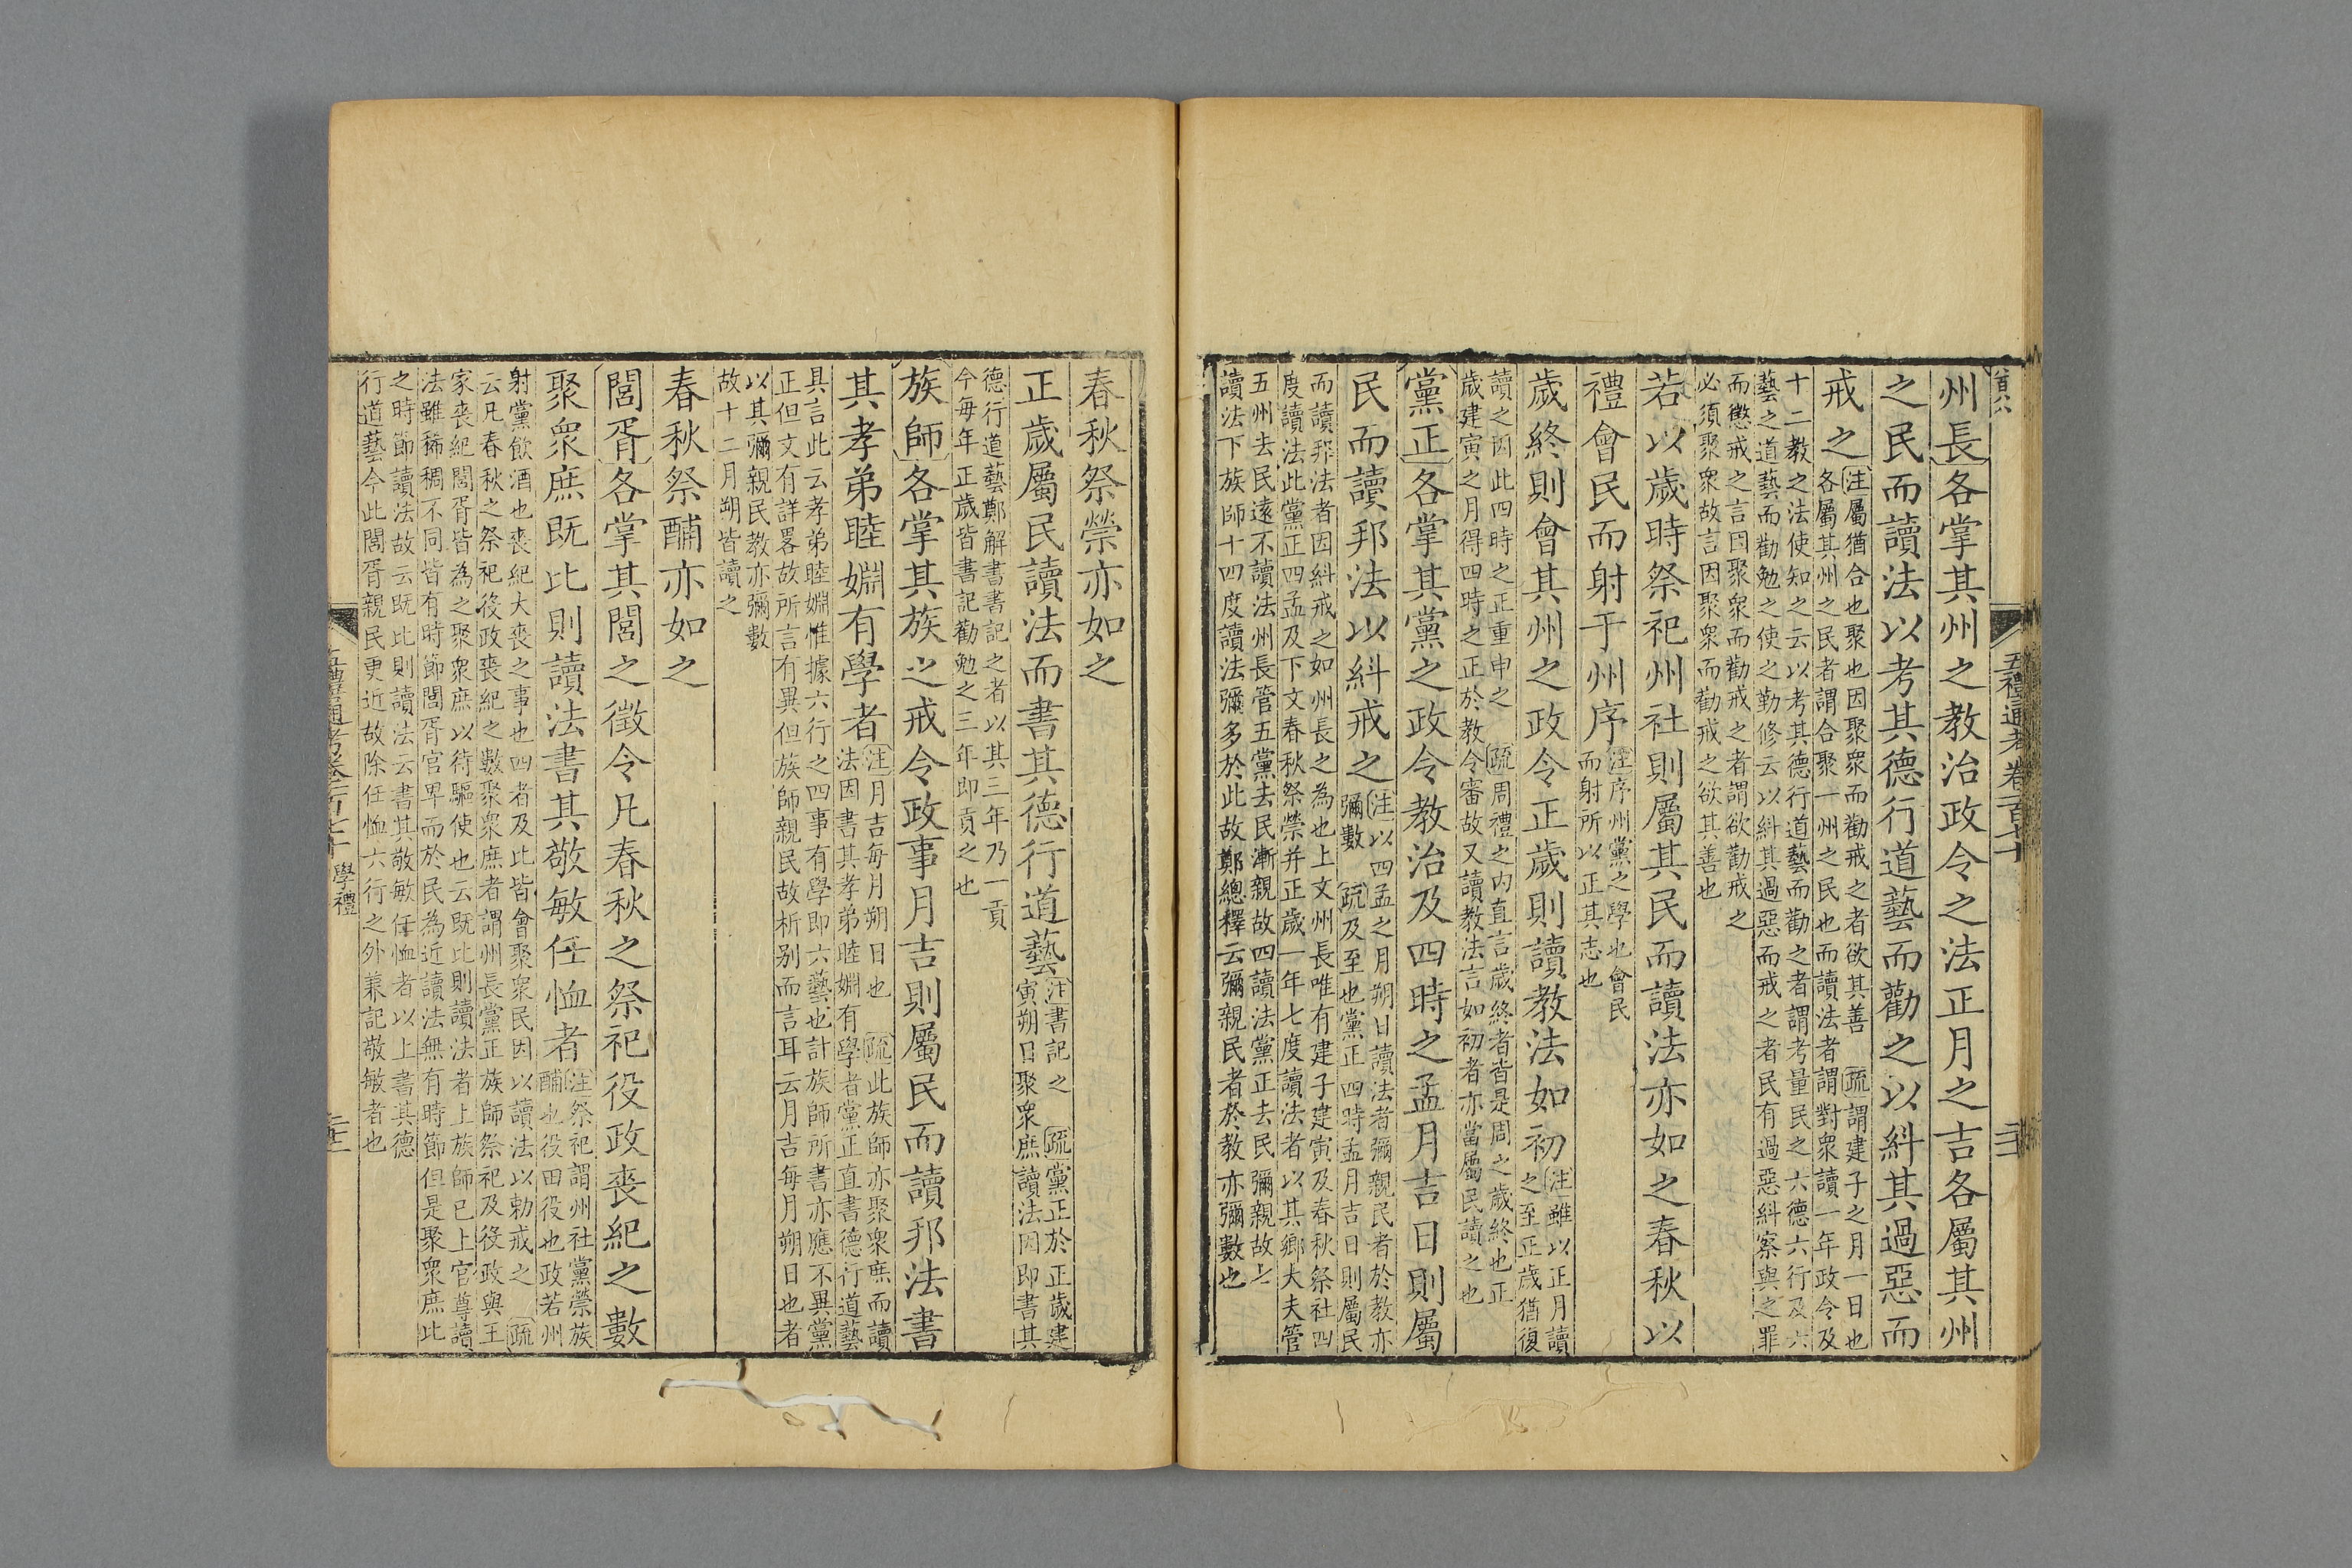 五禮通考卷一百七十
州長各掌其州之教治政令之法正月之吉各屬其州
之民而讀法以考其德行道藝而勸之以糾其過惡而
戒之
注屬猶合也聚也因聚衆而勸戒之者欲其善 疏謂建子之月一日也
各屬其州之民者謂合聚一州之民也而讀法者謂對衆讀一年政令及
十二教之法使知之云以考其德行道藝而勸之者謂考量民之六德六行及六
藝之道藝而勸勉之使之勤修云以糾其過惡而戒之者民有過惡糾察與之罪
而懲戒之言因聚衆而勸戒之者謂欲勸戒之
必須聚衆故言因聚衆而勸戒之欲其善也
若以歲時祭祀州社則屬其民而讀法亦如之春秋以
禮會民而射于州序
注序州黨之學也會民
而射所以正其志也
歲終則會其州之政令正歲則讀教法如初
注雖以正月讀
之至正歲猶復
讀之因此四時之正重申之 疏周禮之内直言歲終者皆是周之歲終也正
歲建寅之月得四時之正於教令審故又讀教法言如初者亦當屬民讀之也
黨正各掌其黨之政令教治及四時之孟月吉日則屬
民而讀邦法以糾戒之
注以四孟之月朔日讀法者彌親民者於教亦
彌數 疏及至也黨正四時孟月吉日則屬民
而讀邦法者因糾戒之如州長之為也上文州長唯有建子建寅及春秋祭社四
度讀法此黨正四孟及下文春秋祭禜并正歲一年七度讀法者以其鄉大夫管
五州去民遠不讀法州長管五黨去民漸親故四讀法黨正去民彌親故七
讀法下族師十四度讀法彌多於此故鄭總釋云彌親民者於教亦彌數也
春秋祭禜亦如之
正歲屬民讀法而書其德行道藝
注書記之 疏黨正於正歲建
寅朔日聚衆庶讀法因即書其
德行道藝鄭解書書記之者以其三年乃一貢
今每年正歲皆書記勸勉之三年即貢之也
族師各掌其族之戒令政事月吉則屬民而讀邦法書
其孝弟睦婣有學者
注月吉每月朔日也 疏此族師亦聚衆庶而讀
法因書其孝弟睦婣有學者黨正直書德行道藝
具言此云孝弟睦婣惟據六行之四事有學即六藝也計族師所書亦應不異黨
正但文有詳畧故所言有異但族師親民故析别而言耳云月吉每月朔日也者
以其彌親民教亦彌數
故十二月朔皆讀之
春秋祭酺亦如之
閭胥各掌其閭之徵令凡春秋之祭祀役政喪紀之數
聚衆庶既比則讀法書其敬敏任恤者
注祭祀謂州社黨禜族
酺也役田役也政若州
射黨飲酒也喪紀大喪之事也四者及比皆會聚衆民因以讀法以勅戒之 疏
云凡春秋之祭祀役政喪紀之數聚衆庶者謂州長黨正族師祭祀及役政與王
家喪紀閭胥皆為之聚衆庶以待驅使也云既比則讀法者上族師已上官尊讀
法雖稀稠不同皆有時節閭胥官卑而於民為近讀法無有時節但是聚衆庶比
之時節讀法故云既比則讀法云書其敬敏任恤者以上書其德
行道藝今此閭胥親民更近故除任恤六行之外兼記敬敏者也
五禮通考卷一百七十 學禮